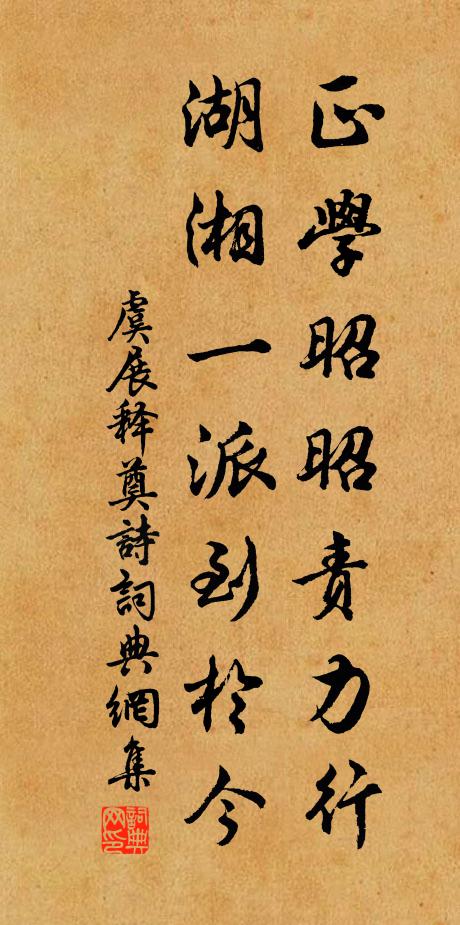 正學昭昭責力行
湖湘一派到於今
虞展釋奠詩詞典網集
詞典网印